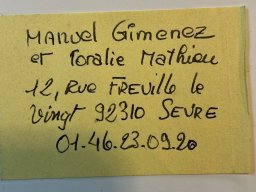 Manuel Gimenez
et Coralie Mathieu
12, Rue Freville le
Vingt 92310 Sevre
01.46.23.09.20